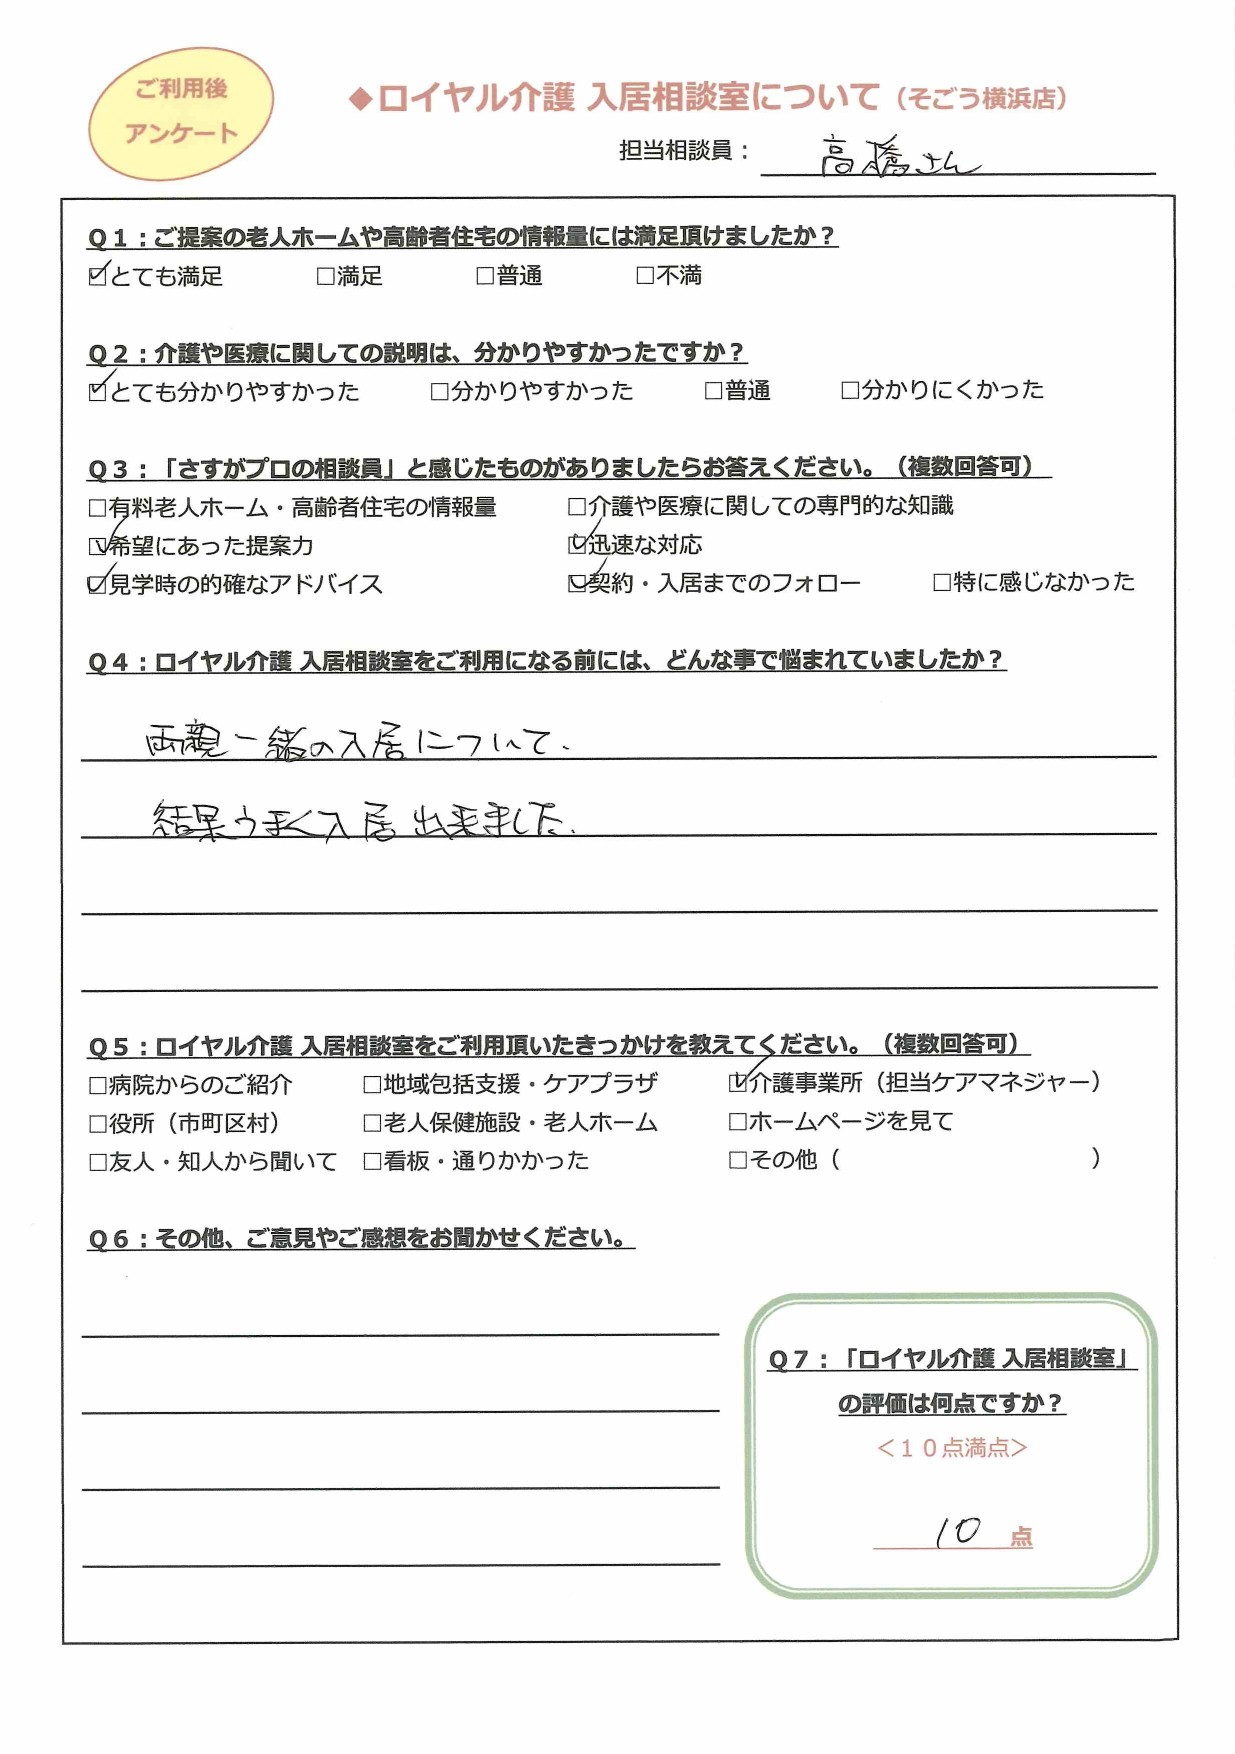 ご利用後
アンケート
◆ロイヤル介護 入居相談室について（そごう横浜店）
担当相談員： 高橋さん
Q1：ご提案の老人ホームや高齢者住宅の情報量には満足頂けましたか？
☑とても満足 □満足 □普通 □不満
Q2：介護や医療に関しての説明は、分かりやすかったですか？
☑とても分かりやすかった □分かりやすかった □普通 □分かりにくかった
Q3：「さすがプロの相談員」と感じたものがありましたらお答えください。（複数回答可）
□有料老人ホーム・高齢者住宅の情報量 □介護や医療に関しての専門的な知識
☑希望にあった提案力 ☑迅速な対応
☑見学時の的確なアドバイス ☑契約・入居までのフォロー □特に感じなかった
Q4：ロイヤル介護 入居相談室をご利用になる前には、どんな事で悩まれていましたか？
両親一緒の入居について．
結果うまく入居出来ました．
Q5：ロイヤル介護 入居相談室をご利用頂いたきっかけを教えてください。（複数回答可）
□病院からのご紹介 □地域包括支援・ケアプラザ ☑介護事業所（担当ケアマネジャー）
□役所（市町区村） □老人保健施設・老人ホーム □ホームページを見て
□友人・知人から聞いて □看板・通りかかった □その他（ ）
Q6：その他、ご意見やご感想をお聞かせください。
Q7：「ロイヤル介護 入居相談室」
の評価は何点ですか？
＜10点満点＞
10 点